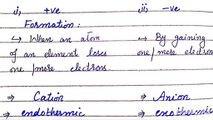 i, +ve ii, -ve
Formation:
→ When an atom → By gaining
of an element loses one/more electron
one/more electrons
⇒ Cation ⇒ Anion
⇒ endothermic ⇒ exothermic